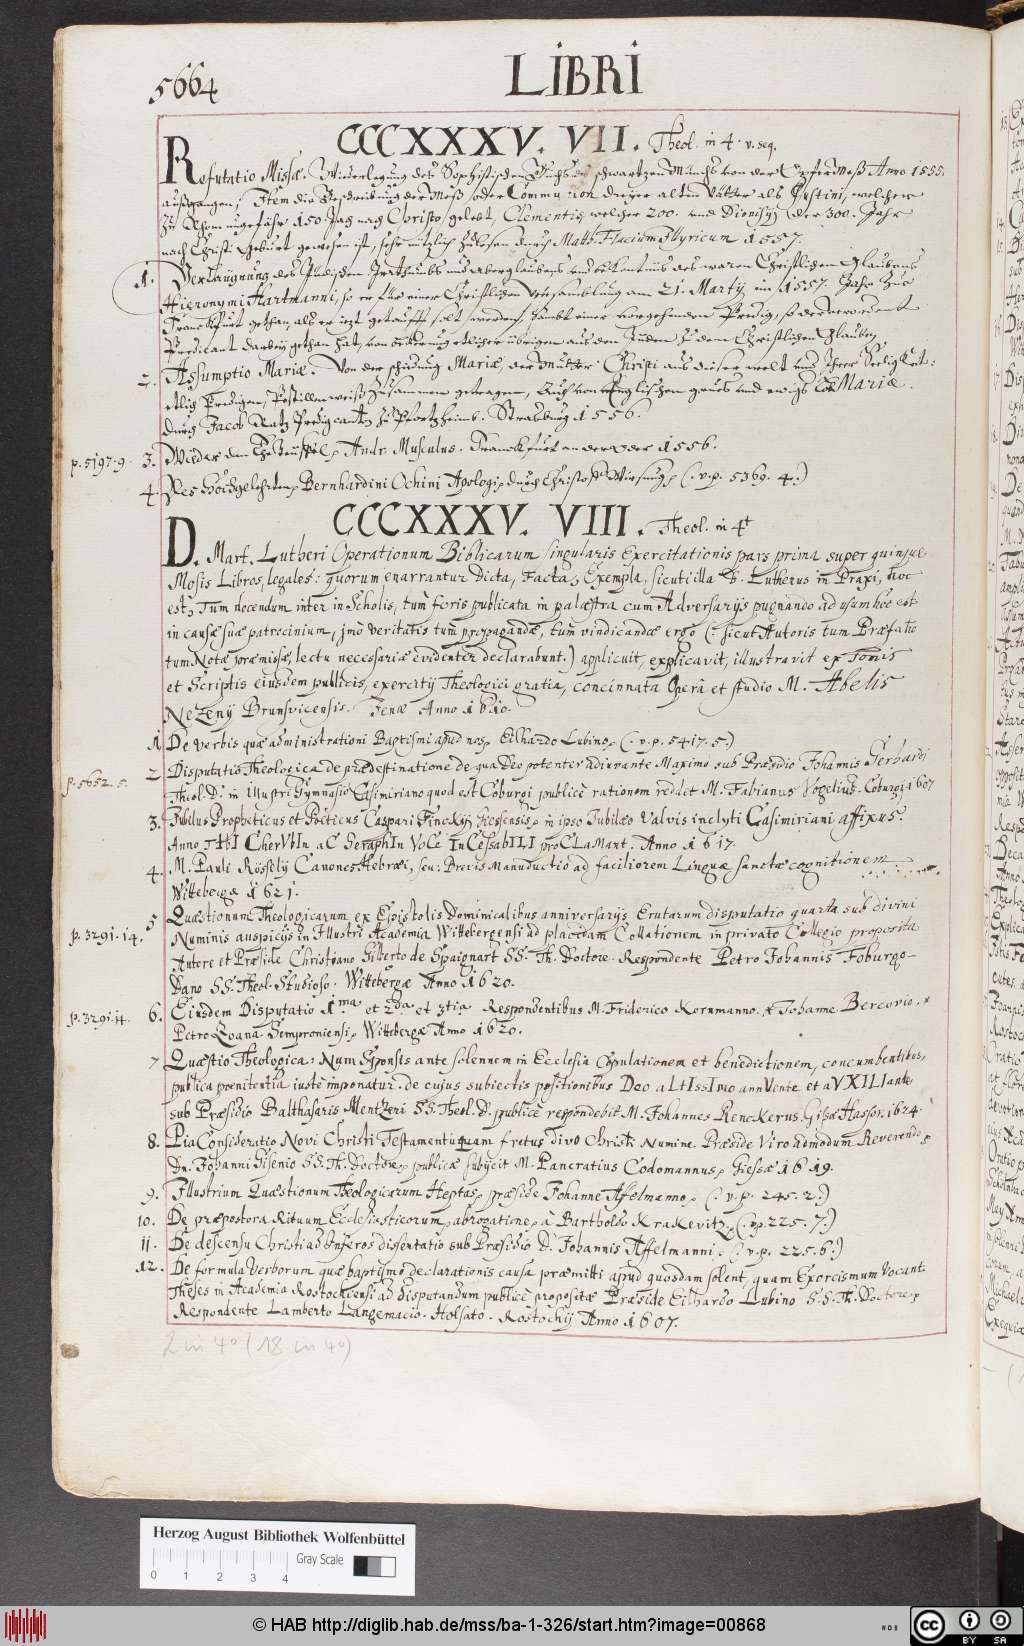 5664
LIBRI
CCCXXXV. VII. Theol. in 4. v. seq.
Refutatio Missæ. Wiederlegung des Sophistischen Buchs des schwartzen Münchs von der OpferMeß Anno 1555.
außgangen, Item die Beschreibung der Meß oder Communion dreyer alten Vätter als Justini, welcher
zu Rhom ungefähr 150. Jar nach Christo gelebt, Clementis welcher 200. und Dionisij der 300. Jahr
nach Christi Geburt gewesen ist, sehr nützlich zulesen durch Matth. Flacium Illyricum 1557.
1. Verläugnung des Jüdischen Irrthumbs und Aberglaubens und bekantnis des waren Christlichen Glaubens
Hieronymi Hartmanni, so er für einer Christlichen Versamblung am 21. Martij im 1557. Jahr zue
Franckfurt gethan, als er jetzt getaufft solt werden, sambt einer vorgehenden Predig, so der
Predicant darbey gethan hat, von etlicher übrigen aus den Juden zu dem Christlichen Glauben,
2. Assumptio Mariæ. Von der schidung Mariæ, der Mutter Christi aus dieser welt und Ihrer Seeligkeit:
etlich Predigen, Postillen weiß Zusammen getragen, Auch von Englischen grues und Lob Mariæ.
durch Jacob Ratz Predicanten zu Pfortzheim. Strasburg 1556.
p. 5197. 9. 3. Wider den Andr. Musculus. Franckfurt an der Oder 1556.
4. Des Hochgelehrten Bernhardini Ochini Apologi, durch Christoff Wirsung, (. v. p. 5369. 4.)
CCCXXXV. VIII. Theol. in 4t
D. Mart. Lutheri Operationum Biblicarum singularis Exercitationis pars prima super quinque
Mosis Libros, legales: quorum enarrantur Dicta, Facta, Exempla, sicuti illa B. Lutherus in Praxi, hoc
est, Tum docendum inter in Scholis, tùm foris publicata in palæstra cum Adversarijs pugnando ad usum hoc est
in causæ suæ patrocinium, jmò veritatis tum propagandæ, tum vindicandæ ergo (: sicut Autoris tum Præfatio
tum Notæ præmissæ, lectu necessariæ evidenter declarabunt.) applicuit, explicavit, illustravit ex Tomis
et Scriptis eiusdem publicis, exercitij Theologici gratia, concinnata Operâ et studio M. Abelis
Nezenij Brunsvicensis. Jenæ Anno 1610.
1 De verbis quæ administrationi Baptismi apud nos, Eilhardo Lubino, (. v. p. 5417. 5.)
p. 5652. 5. 2 Disputatio Theologica de prædestinatione de qua Deo potenter adiuvante Maximo sub Præsidio Johannis Gerhardi
Theol. D. in Illustri Gymnasio Casimiriano quod est Coburgi publicè rationem reddet M. Fabianus Vogelius. Coburgi 1607
3. Jubilus Propheticus et Poëticus Caspari Finckij Giessensis, in ipso Jubilæo Valvis inclyti Casimiriani affixus.
Anno TIbI CherVbIn aC SeraphIn VoCe InCessabILI proCLaMant. Anno 1617.
4. M. Pauli Rösselij Canones Hebræi, seu: Brevis Manuductio ad faciliorem Linguæ sanctæ cognitionem
Wittebergæ 1621.
p. 3291. 14. 5 Quæstionum Theologicarum ex Epistolis Dominicalibus anniversarijs Erutarum disputatio quarta sub divini
Numinis auspicijs in Illustri Academia Wittebergensi ad placidam Collationem in privato Collegio proposita
Autore et Præside Christiano Gilberto de Spaignart SS. Th. Doctore. Respondente Petro Johannis Foburgo-
Dano SS. Theol. Studioso. Wittebergæ Anno 1620.
p. 3291. 14. 6. Eiusdem Disputatio 1ma et 2da et 3tia Respondentibus M. Friderico Kornmanno. Johanne Bercovio.
Petro Zoana Semproniensi, Wittebergæ Anno 1620.
7 Quæstio Theologica: Num Sponsis ante solennem in Ecclesia Copulationem et benedictionem, concumbentibus,
publica poenitentia iuste imponatur. de cujus subiectis positionibus Deo aLtIssImo annVente et aVXILIante
sub Præsidio Balthasaris Mentzeri SS. Theol. D. publicè respondebit M. Johannes Renckerus. Gissæ Hassor. 1624.
8. Pia Consideratio Novi Christi Testamenti quam fretus divo Christi Numine Præside Viro admodum Reverendo
Dn. Johanni Gisenio SS. Th. Doctore, publicæ subijcit M. Pancratius Codomannus, Giessæ 1619.
9. Illustrium Quæstionum Theologicarum Heptas, præside Johanne Affelmanno, (. v. p. 245. 2.)
10. De præpostora Rituum Ecclesiasticorum abrogatione, à Bartholdo Krakevitz, (. v.p. 225. 7.)
11. De descensu Christi ad Inferos dissertatio sub Præsidio D. Johannis Affelmanni. (. v. p. 225. 6.)
12. De formula verborum quæ baptismo declarationis causa præmitti apud quosdam solent, quam Exorcismum vocant
Theses in Academia Rostochiensi ad disputandum publicè propositæ Præside Eilhardo Lubino SS. Th. Doctore,
Respondente Lamberto Langemacio. Holsato. Rostochij Anno 1607.
2 in 4° (18 in 4°)
Herzog August Bibliothek Wolfenbüttel
Gray Scale
0 1 2 3 4
© HAB http://diglib.hab.de/mss/ba-1-326/start.htm?image=00868
WDB
cc BY SA